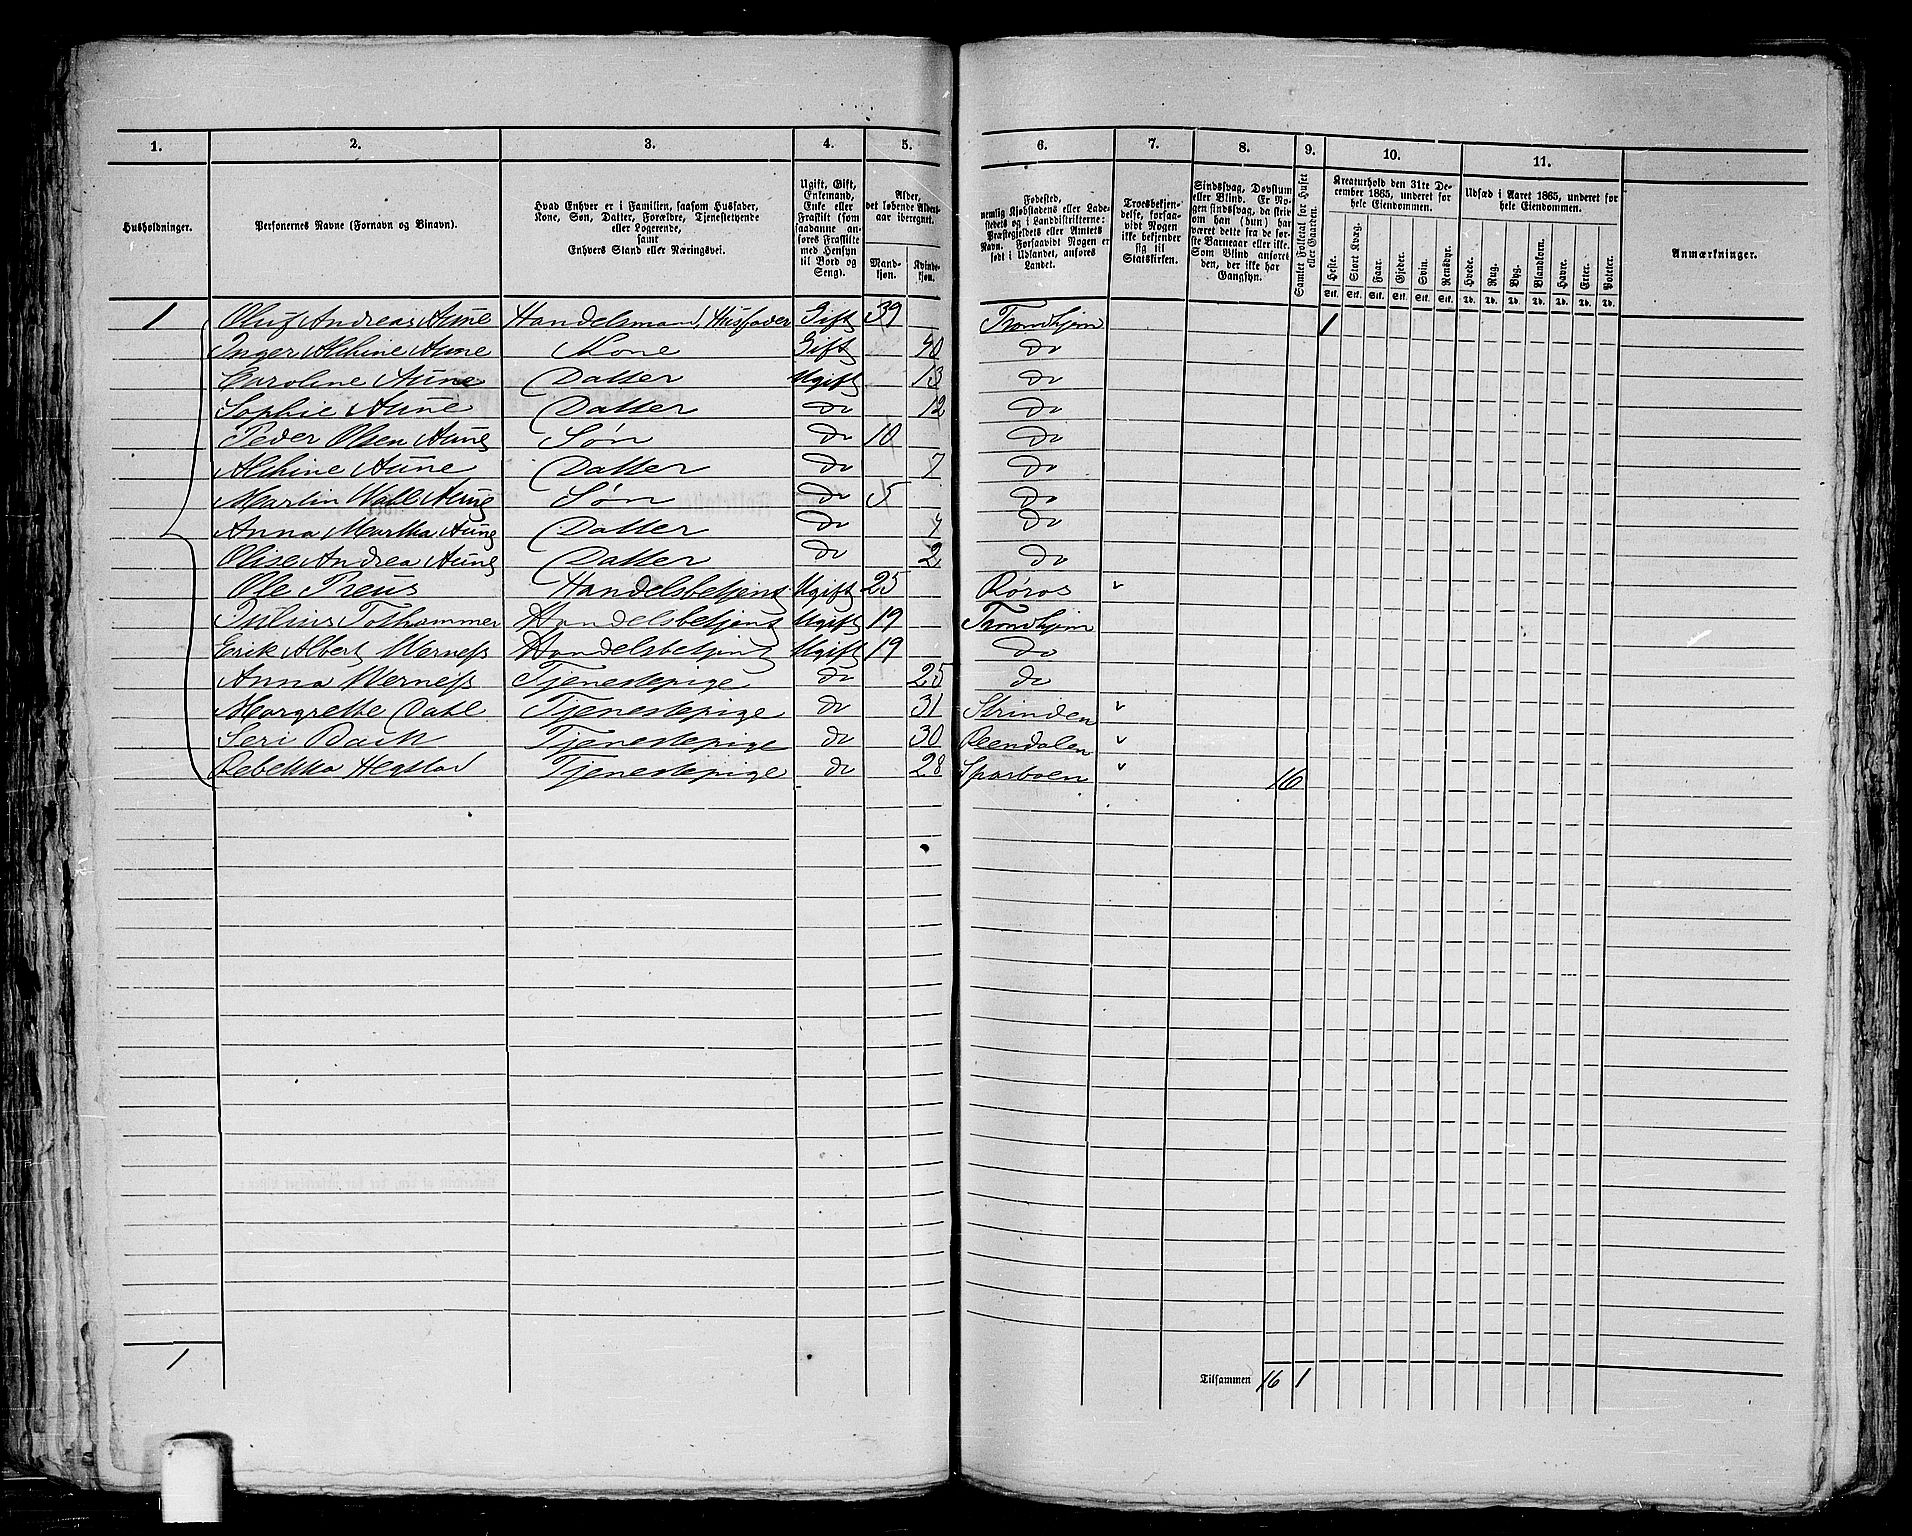 1. 2. 3. 4. 5. 6. 7. 8. 9. 10. 11.
Husholdninger.
Personernes Navne (Fornavn og Binavn).
Hvad Enhver er i Familien, saasom Husfader,
Kone, Søn, Datter, Forældre, Tjenestetyende
eller Logerende,
samt
Enhvers Stand eller Næringsvei.
Ugift, Gift,
Enkemand,
Enke eller
Fraskilt (som
saadanne an-
føres Fraskilte
med Hensyn
til Bord og
Seng).
Alder,
det løbende Alders-
aar iberegnet.
Mand-
kjøn.
Kvinde-
kjøn.
Fødested,
nemlig Kjøbstadens eller Lade-
stedets og i Landdistrikterne:
Præstegjeldets eller Amtets
Navn. Forsaavidt Nogen er
født i Udlandet, anføres
Landet.
Troesbekjen-
delse, forsaa-
vidt Nogen
ikke bekjender
sig til
Statskirken.
Sindssvag, Døvstum
eller Blind. Er No-
gen sindssvag, da skriv
om han (hun) har
været dette fra de før-
ste Barneaar eller ikke.
Som Blind anføres
den, der ikke har
Gangsyn.
Samlet Folketal for Huset
eller Gaarden.
Kreaturhold den 31te De-
cember 1865, underet for
hele Eiendommen.
Heste. Stort Kvæg. Faar. Gjeder. Svin. Rensdyr.
Stk. Stk. Stk. Stk. Stk. Stk.
Udsæd i Aaret 1865, underet for
hele Eiendommen.
Hvede. Rug. Byg. Blandkorn. Havre. Erter. Poteter.
Td. Td. Td. Td. Td. Td. Td.
Anmærkninger.
1 Oluf Andreas Aune Handelsmand, Husfader Gift 39 Trondhjem 1
Inger Alchine Aune Kone Gift 40 do
Caroline Aune Datter Ugift 13 do
Sophie Aune Datter do 12 do
Peder Olsen Aune Søn do 10 do
Alchine Aune Datter do 7 do
Martin Wall Aune Søn do 5 do
Anna Martha Aune Datter do 4 do
Olise Andrea Aune Datter do 2 do
Ole Preus Handelsbetjent Ugift 25 Røros
Julius Tolhammer Handelsbetjent Ugift 19 Trondhjem
Erik Albert Werness Handelsbetjent Ugift 19 do
Anna Werness Tjenestepige do 25 do
Margrethe Dahl Tjenestepige do 31 Strinden
Seri Bach Tjenestepige do 30 Reendalen
Rebekka Hegstad Tjenestepige do 28 Sparboen 16
1
Tilsammen 16 1